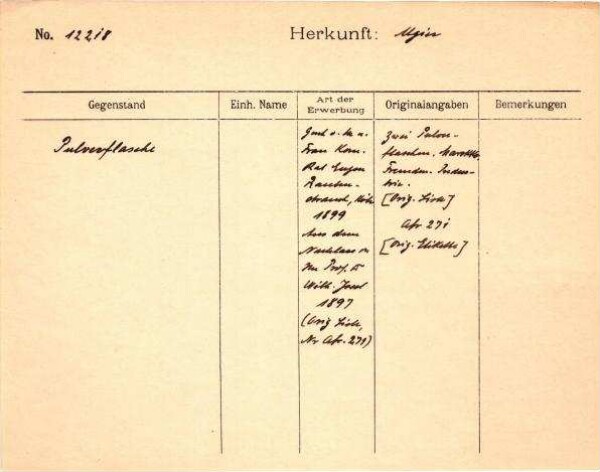 No. 12218
Herkunft: Algier
Gegenstand
Einh. Name
Art der
Erwerbung
Originalangaben
Bemerkungen
Pulverflasche
Gesch. v. Hn u.
Frau Kom.
Rat Eugen
Rauten-
strauch, Köln
1899
Aus dem
Nachlass v
Hn Prof. Dr
Wilh. Joest
1897
(Orig Liste,
Nr Afr. 271)
Zwei Pulver-
flaschen. Marokko,
Fremden-Indus-
trie.
[Orig. Liste]
Afr. 271
[Orig. Etikette]